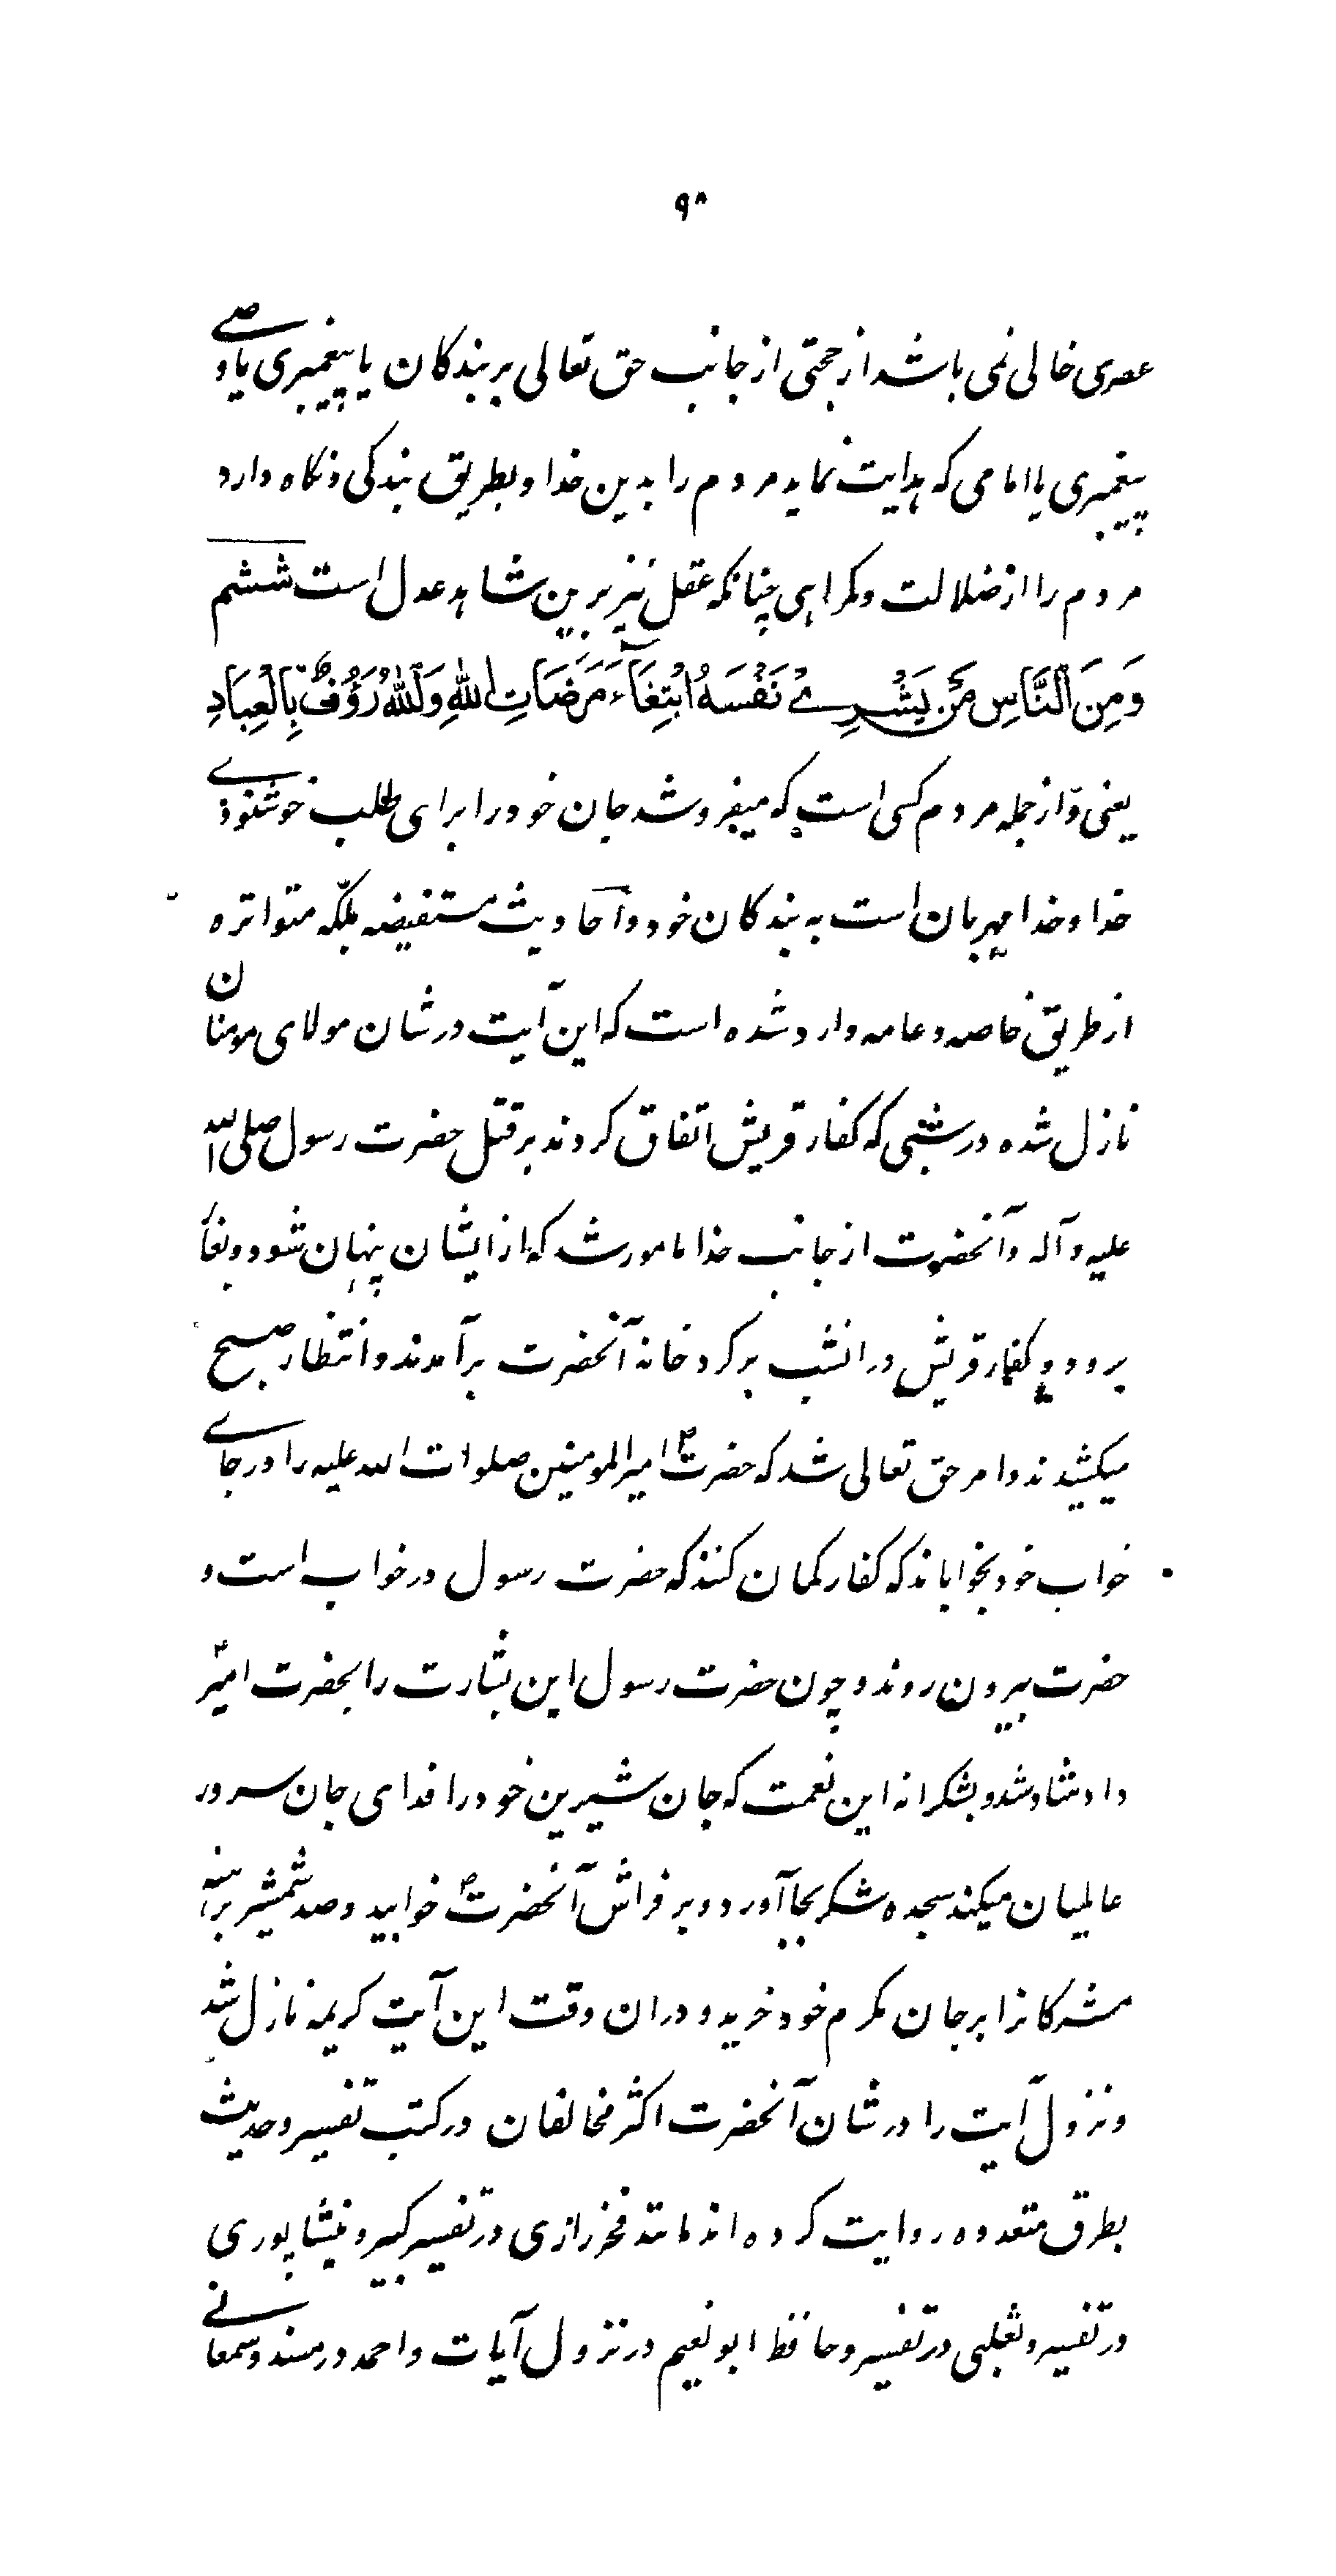 ۹۸
عصری خالی نمی باشد از حجتی از جانب حق تعالی بر بندکان یا پیغمبری یا وصے
پیغمبری یا امامی که هدایت نماید مردم را بدین خدا و بطریق بندکی و نکاه دارد
مردم را از ضلالت و کمراهی چنانکه عقل نیز برین شاهد عدل است ششم
وَمِنَ النَّاسِ مَنْ يَشْرِے نَفْسَهُ ابْتِغَآءَ مَرَضَاتِ اللهِ وَاللهُ رَؤُفٌ بِالْعِبَادِ
یعنی و از جمله مردم کسی است که میفروشد جان خود را برای طلب خوشنودے
خدا و خدا مهربان است به بندکان خود و احادیث مستفیضه بلکه متواتره
از طریق خاصه و عامه وارد شده است که این آیت در شان مولای مومنان
نازل شده در شبی که کفار قریش اتفاق کردند بر قتل حضرت رسول صلی الله
علیه و آله و آنحضرت از جانب خدا مامور شد که از ایشان پنهان شود و بغار
برود و کفار قریش در انشب بر کرد خانه آنحضرت برآمدند و انتظار صبح
میکشیدند و امر حق تعالی شد که حضرت امیر المومنین صلوات الله علیه را در جاے
خواب خود بخواباند که کفار کمان کنند که حضرت رسول در خواب است و
حضرت بیرون روند و چون حضرت رسول این بشارت را بحضرت امیرؑ
داد شاد شد و بشکرانه این نعمت که جان شیرین خود را فدای جان سرور
عالمیان میکند سجده شکر بجا آورد و بر فراش آنحضرتؐ خوابید و صد شمشیر برهنه
مشرکانرا بر جان مکرم خود خرید و دران وقت این آیت کریمه نازل شد
و نزول آیت را در شان آنحضرت اکثر مخالفان در کتب تفسیر و حدیث
بطرق متعدده روایت کرده اند مانند فخر رازی در تفسیر کبیر و نیشاپوری
در تفسیر و ثعلبی در تفسیر و حافظ ابو نعیم در نزول آیات و احمد در مسند و سمعانے